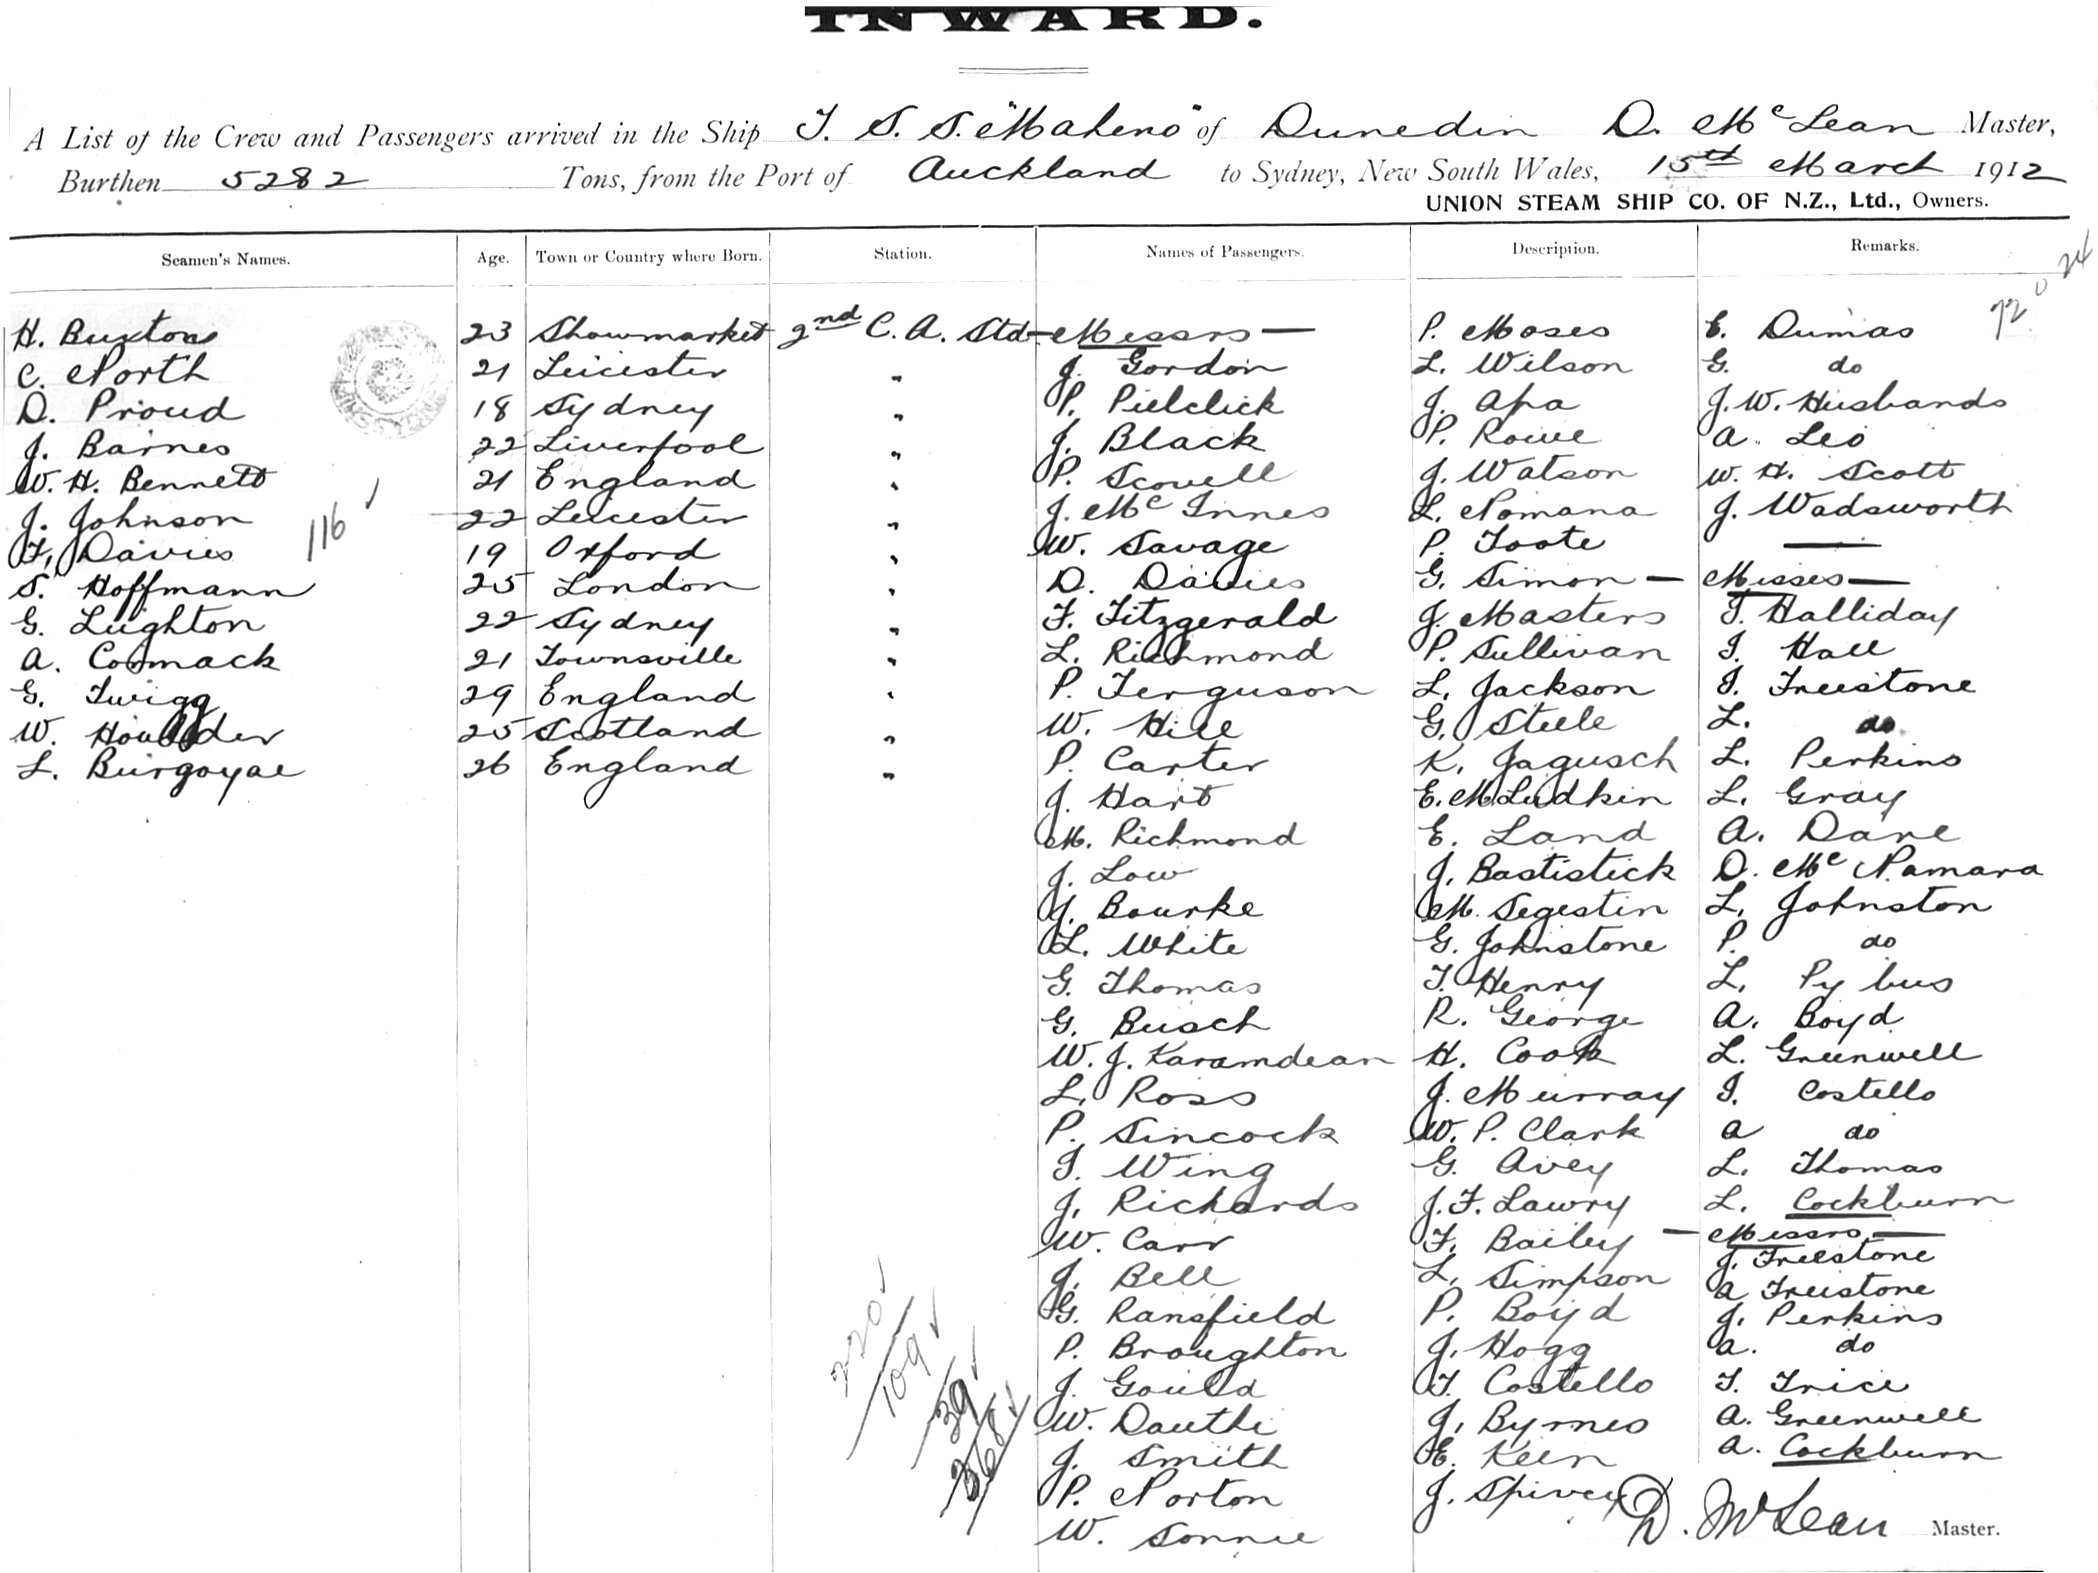 INWARD.
A List of the Crew and Passengers arrived in the Ship T. S. S. "Maheno" of Dunedin D. McLean Master,
Burthen 5282 Tons, from the Port of Auckland to Sydney, New South Wales, 15th March 1912
UNION STEAM SHIP CO. OF N.Z., Ltd., Owners.
Seamen's Names. Age. Town or Country where Born. Station. Names of Passengers. Description. Remarks.
72 0 24
H. Buxton 23 Showmarket 2nd C. A. Std Messrs — P. Moses E. Dumas
C. North 21 Leicester " J. Gordon L. Wilson G. do
D. Proud 18 Sydney " P. Pielclick J. Apa J. W. Husbands
J. Barnes 22 Liverpool " J. Black P. Rowe A. Leo
W. H. Bennett 21 England " P. Scovell J. Watson W. H. Scott
J. Johnson 22 Leicester " J. McInnes L. Nomana J. Wadsworth
116
F. Davies 19 Oxford " W. Savage P. Foote —
S. Hoffmann 25 London " D. Davies G. Simon — Misses —
G. Leighton 22 Sydney " F. Fitzgerald J. Masters T. Halliday
A. Cormack 21 Townsville " L. Richmond P. Sullivan I. Hall
G. Twigg 29 England " P. Ferguson L. Jackson I. Freestone
W. Houllder 25 Scotland " W. Hill G. Steele L. do
L. Burgoyne 26 England " P. Carter K. Jagusch L. Perkins
J. Hart E. M. Ludkin L. Gray
M. Richmond E. Land A. Dane
J. Low J. Bastistick D. McNamara
J. Bourke M. Segestin L. Johnston
L. White G. Johnstone P. do
G. Thomas T. Henry L. Pybus
G. Busch R. George A. Boyd
W. J. Karamdean H. Cook L. Greenwell
L. Ross J. Murray I. Costello
P. Sincock W. P. Clark A do
I. Wing G. Avey L. Thomas
J. Richards J. F. Lawry L. Cockburn
W. Carr F. Bailey — Messrs —
J. Bell L. Simpson J. Freestone
A Freestone
G. Ransfield P. Boyd J. Perkins
P. Broughton J. Hogg A. do
J. Gould T. Costello T. Trice
W. Dauthi J. Byrnes A. Greenwell
J. Smith E. Keen A. Cockburn
P. Norton J. Spivey
W. Sonnie D. McLean Master.
220
109
39
368